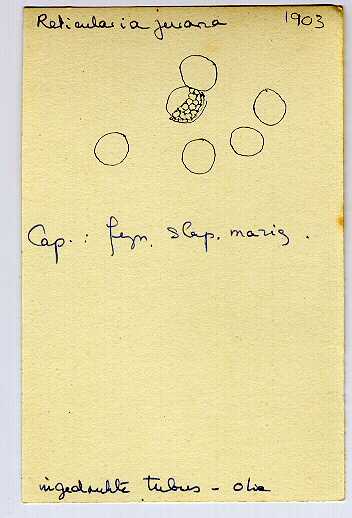 Reticularia jurana 1903
Cap. : fijn, slap, mazig.
ingedrukte tubus - olie